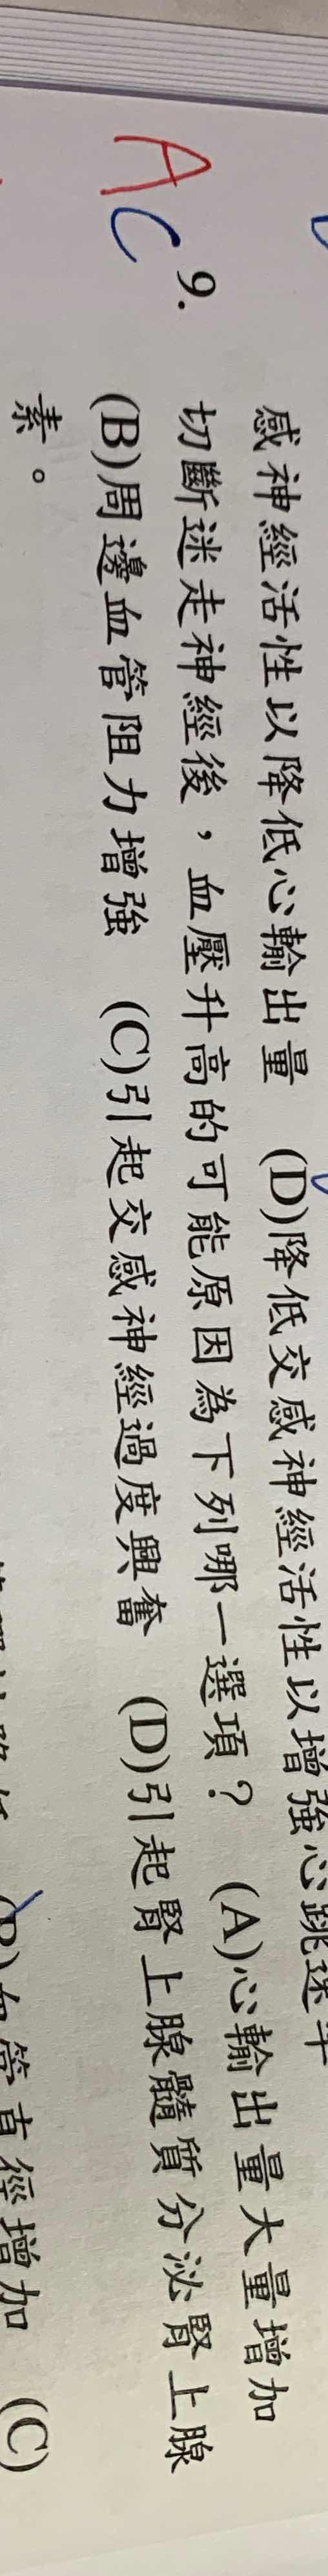 感神經活性以降低心輸出量 (D)降低交感神經活性以增強心跳速率
AC 9. 切斷迷走神經後,血壓升高的可能原因為下列哪一選項? (A)心輸出量大量增加
(B)周邊血管阻力增強 (C)引起交感神經過度興奮 (D)引起腎上腺髓質分泌腎上腺
素。
血管直徑增加 (C)